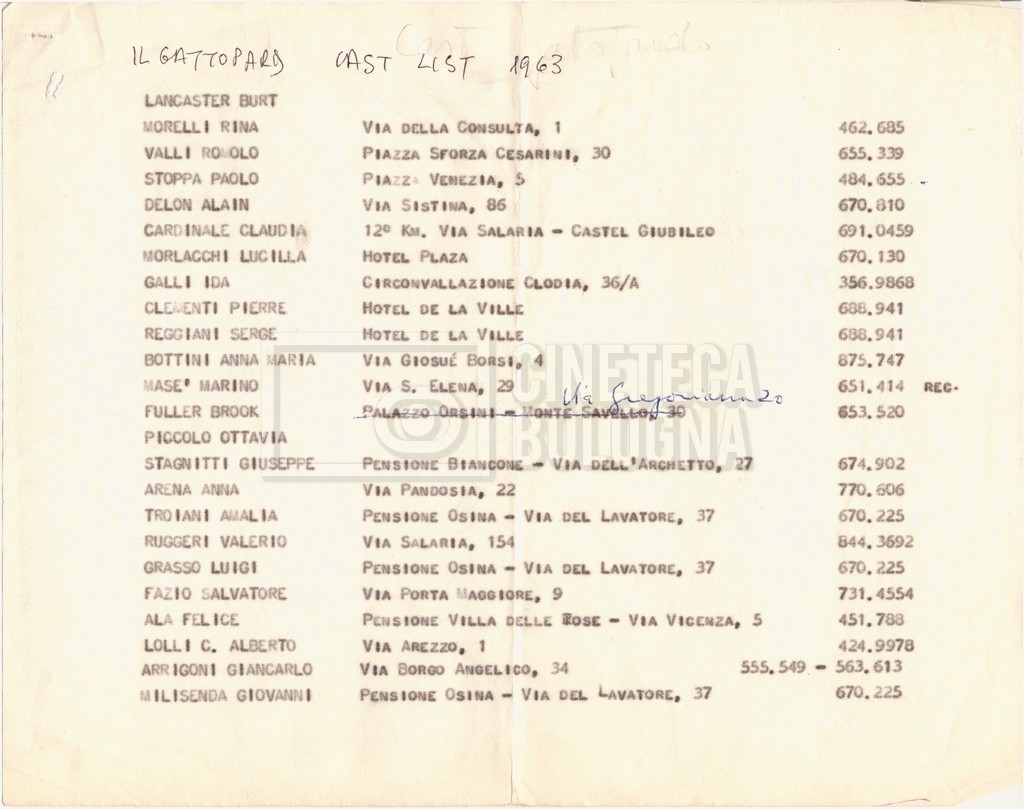 IL GATTOPARD CAST LIST 1963
LANCASTER BURT
MORELLI RINA VIA DELLA CONSULTA, 1 462.685
VALLI ROMOLO PIAZZA SFORZA CESARINI, 30 655.339
STOPPA PAOLO PIAZZA VENEZIA, 5 484.655
DELON ALAIN VIA SISTINA, 86 670.810
CARDINALE CLAUDIA 12º KM. VIA SALARIA - CASTEL GIUBILEO 691.0459
MORLACCHI LUCILLA HOTEL PLAZA 670.130
GALLI IDA CIRCONVALLAZIONE CLODIA, 36/A 356.9868
CLEMENTI PIERRE HOTEL DE LA VILLE 688.941
REGGIANI SERGE HOTEL DE LA VILLE 688.941
BOTTINI ANNA MARIA VIA GIOSUÉ BORSI, 4 875.747
MASE' MARINO VIA S. ELENA, 29 651.414 REC.
Via Gregoriana 20
FULLER BROOK PALAZZO ORSINI - MONTE SAVELLO, 30 653.520
PICCOLO OTTAVIA
STAGNITTI GIUSEPPE PENSIONE BIANCONE - VIA DELL'ARCHETTO, 27 674.902
ARENA ANNA VIA PANDOSIA, 22 770.606
TROIANI AMALIA PENSIONE OSINA - VIA DEL LAVATORE, 37 670.225
RUGGERI VALERIO VIA SALARIA, 154 844.3692
GRASSO LUIGI PENSIONE OSINA - VIA DEL LAVATORE, 37 670.225
FAZIO SALVATORE VIA PORTA MAGGIORE, 9 731.4554
ALA FELICE PENSIONE VILLA DELLE ROSE - VIA VICENZA, 5 451.788
LOLLI C. ALBERTO VIA AREZZO, 1 424.9978
ARRIGONI GIANCARLO VIA BORGO ANGELICO, 34 555.549 - 563.613
MILISENDA GIOVANNI PENSIONE OSINA - VIA DEL LAVATORE, 37 670.225
CINETECA
BOLOGNA